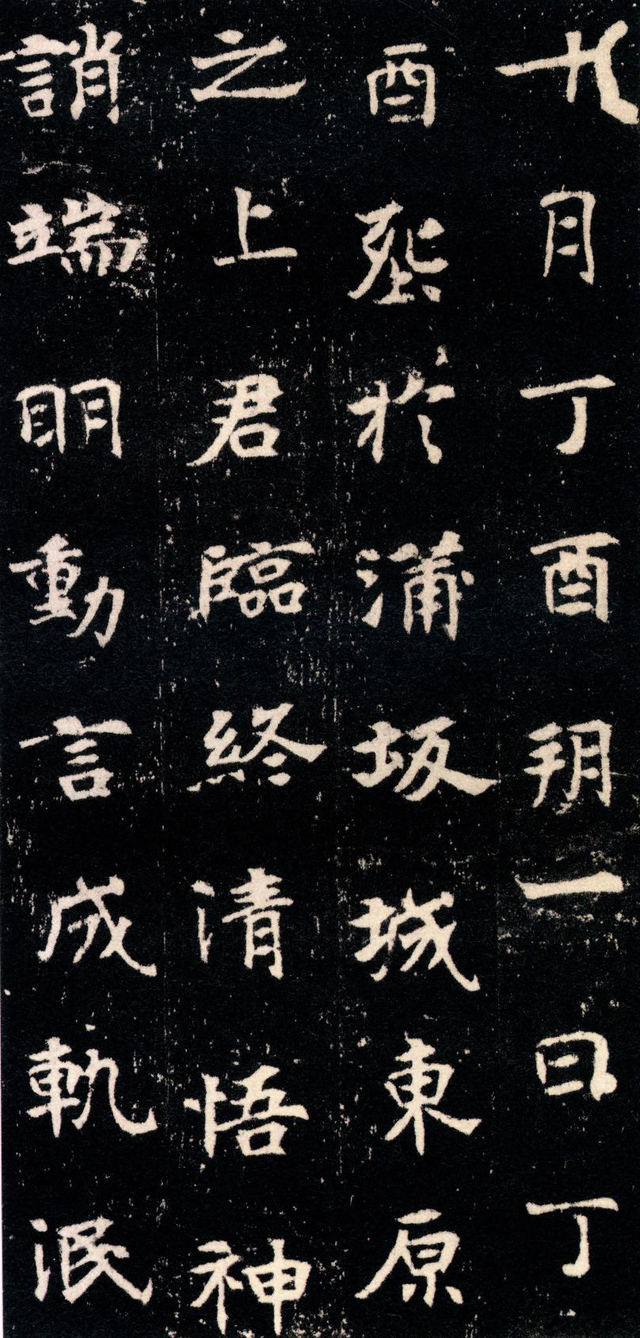 十月丁酉朔一日丁
酉葬於浦坂城東原
之上君臨終清悟神
誚端明動言成軌泯